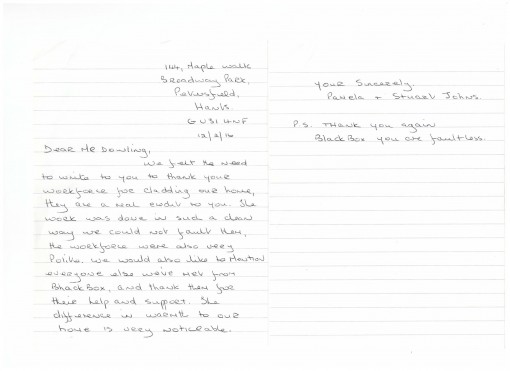 144, Maple walk
Broadway Park,
Petersfield,
Hants.
GU31 4NF
12/2/16
Dear Mr Dowling,
We felt the need
to write to you to thank your
workforce for cladding our home,
they are a real credit to you. The
work was done in such a clean
way we could not fault them,
the workforce were also very
Polite. We would also like to Mention
everyone else we've met from
BlackBox, and thank them for
there help and support. The
difference in warmth to our
home is very noticeable.
Your Sincerely.
Pamela + Stuart Johns.
P.S. Thank you again
BlackBox you are faultless.